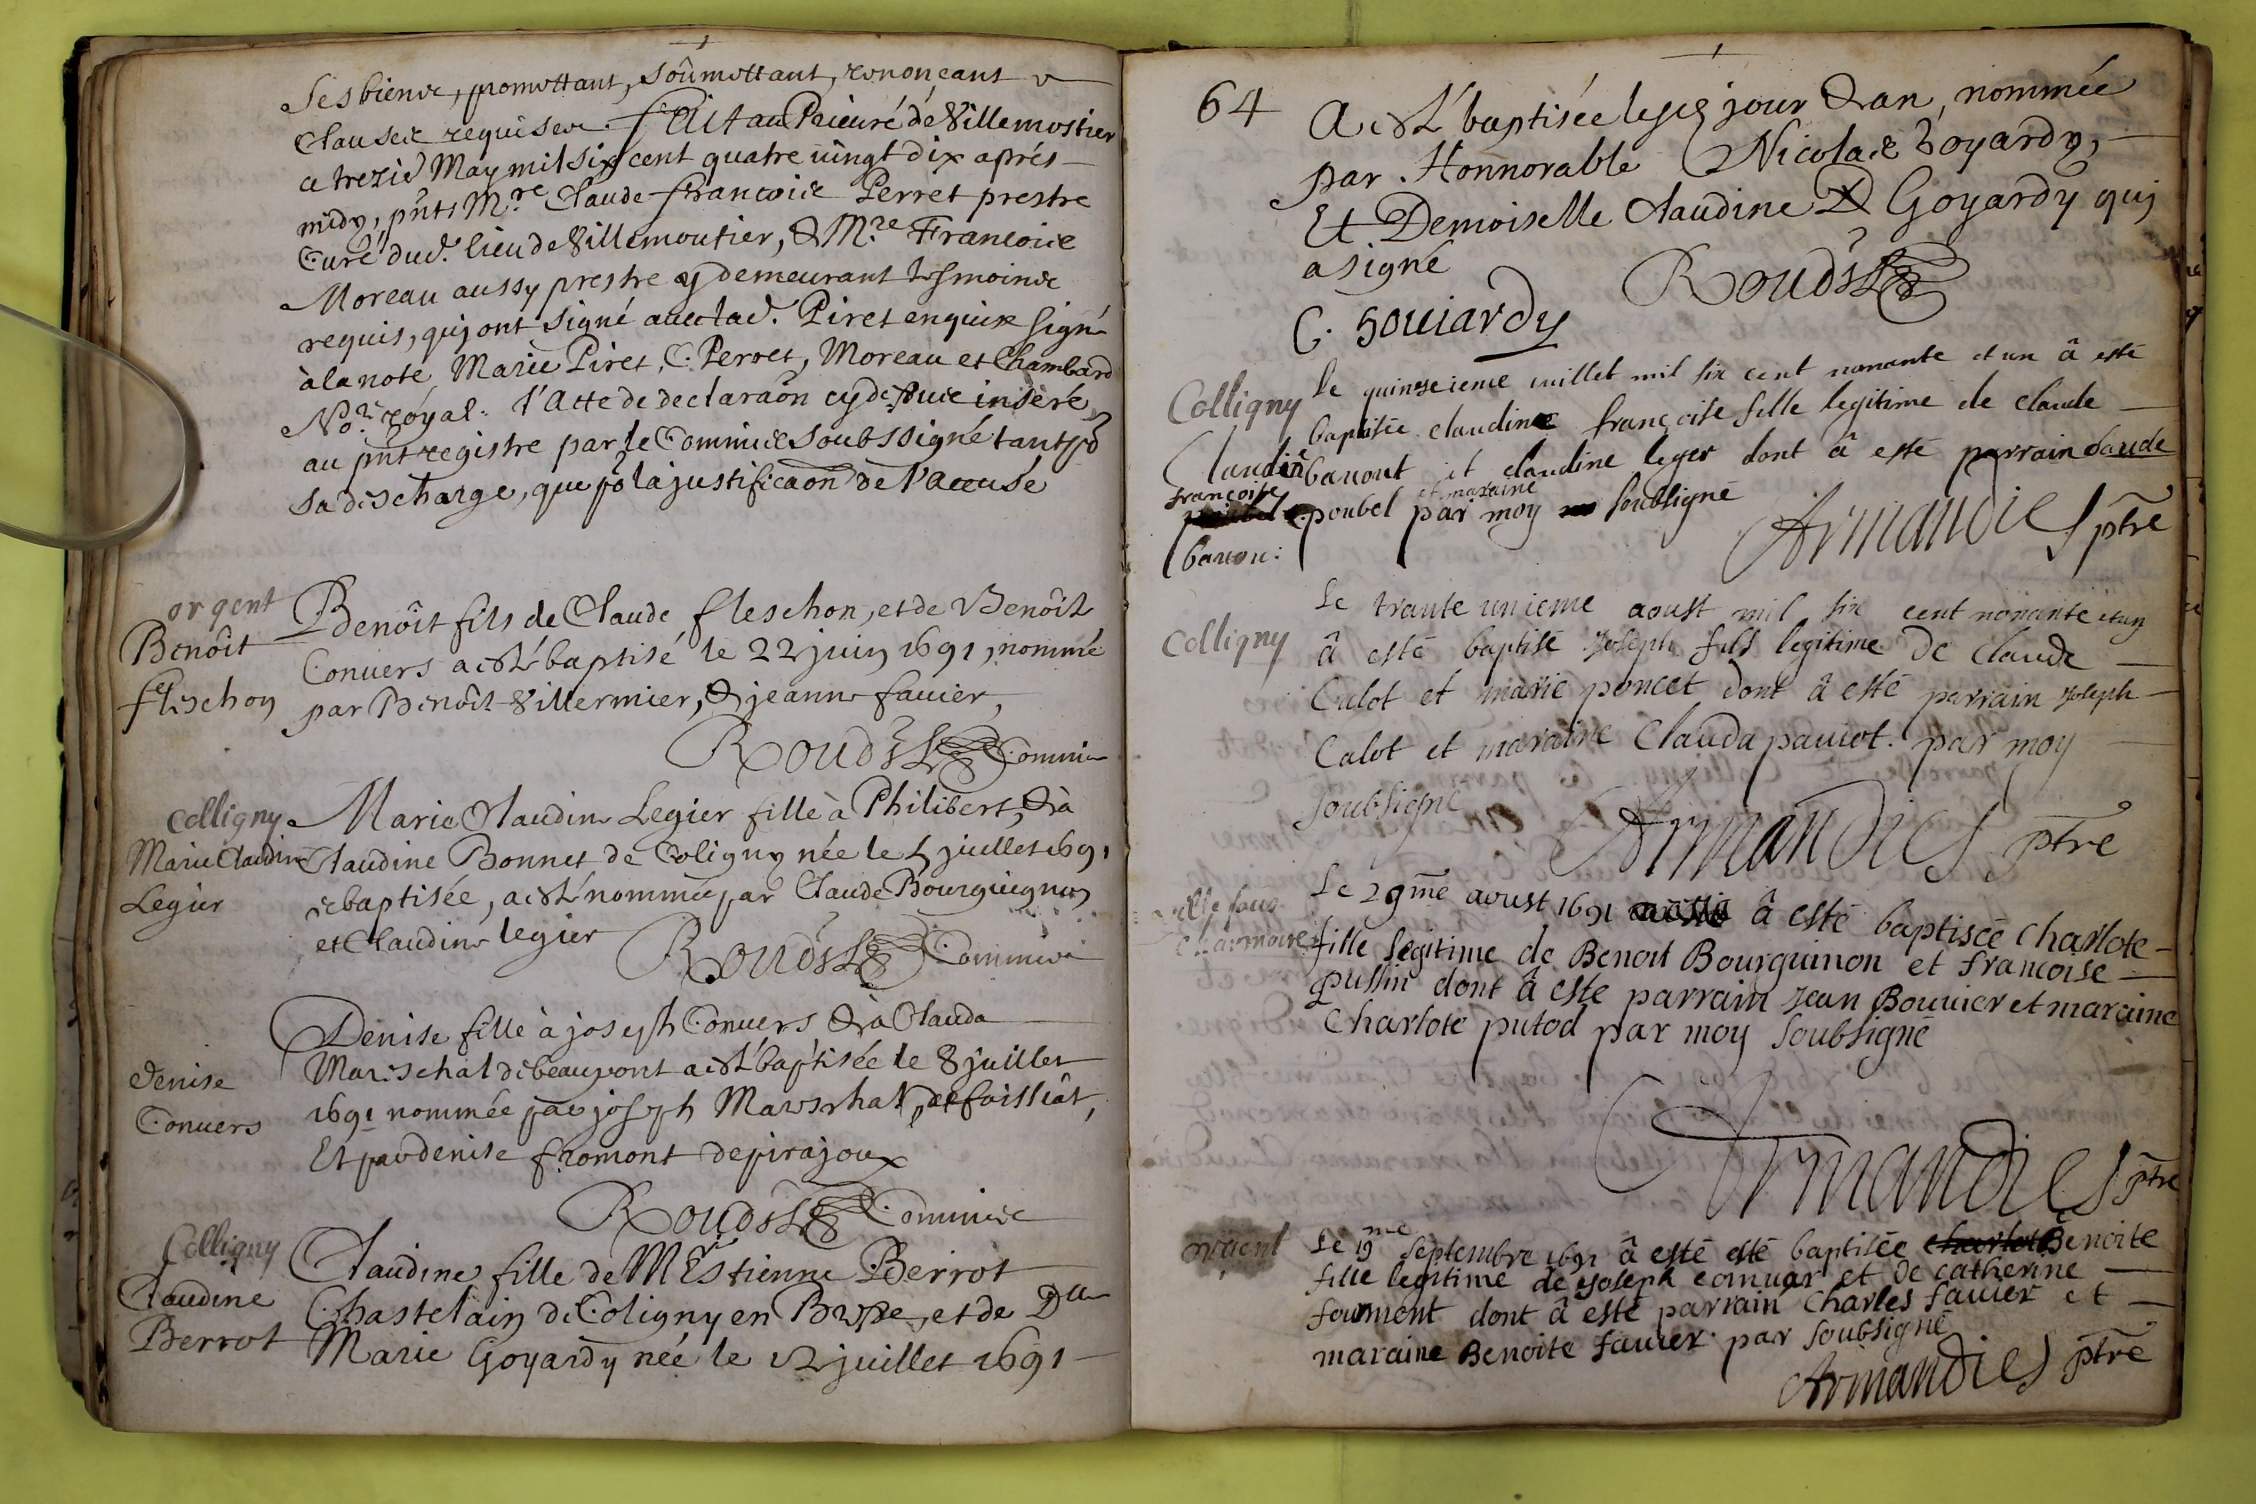 Ses biens, promettant, soûmettant, renonçant
Clauses requises. faict au Prieuré de Villemostier
ce trezie May mil six cent quatre uingt dix aprés
midy, pnts Mre Claude françois Perret prestre
Curé dud. lieu de Villemoutier, & Mre François
Moreau aussy prestre y demeurant tesmoins
requis, quj ont signé auec lad. Piret enquise signé
à la note Marie Piret, C. Perret, Moreau et Chambard
Nore royal. l'Acte de declaraôn cy dessus inséré
au pnt registre par le Commis soubssigné tant po
sa descharge, que po la justificaôn de l'accusé
orgent
Benoît
fleschon
Benoît fils de Claude fleschon, et de Benôite
Conuers a esté baptisé le 22 juin 1691, nommé
par Benôit Villermier, & jeanne fauier,
Commis
Colligny
Marie Claudine
Legier
Marie Claudine Legier fille à Philibert, & à
Claudine Bonnet de Coligny née le 5 juillet 1691
& baptisée, a esté nommée par Claude Bourguignon
et Claudine legier
Commis
Denise
Conuers
Denise fille à joseph Conuers & à Clauda
Mareschal de beaupont a esté baptisée le 8 juillet
1691 nommée par joseph Mareschal, de foissiât,
Et par denise fromont de pirajoux
Commis
Colligny
Claudine
Berrot
Claudine fille de Mre Estienne Berrot
Chastelain de Coligny en Bresse, et de Dlle
Marie Goyardy née le 12 juillet 1691
64
A esté baptisée lesd jour & an, nommée
par Honnorable Nicolas Goyardy,
Et Demoiselle Claudine Goyardy quj
a signé
C. Gouiardy
Colligny
Claudine
françoise
banon:
le quinseieme iuillet mil six cent nonante et un â esté
baptisée claudine françoise fille legitime de claude
banont et claudine leger dont â esté parrain claude
poubel et maraine par moy soubsigné
Armandies ptre
Colligny
Le trante unieme aoust mil six cent nonante et un
â esté baptisé Joseph fils legitime de claude
Calot et marie poncet dont â esté parrain Joseph
Calot et maraine Clauda pauiot. par moy
soubsigné
Armandies ptre
charmoux
Le 29me aoust 1691 â esté baptisée charlote
fille legitime de Benoit Bourguinon et francoise
pussin dont â esté parrain Jean Bouuier et maraine
charlote putod par moy soubsigné
Armandies ptre
orgent
Le 19me septembre 1691 â esté esté baptisée charlot Benoite
fille legitime de Joseph conuar et de catherine
fourmont dont â esté parrain charles fauier et
maraine Benoite fauier par soubsigné
Armandies ptre